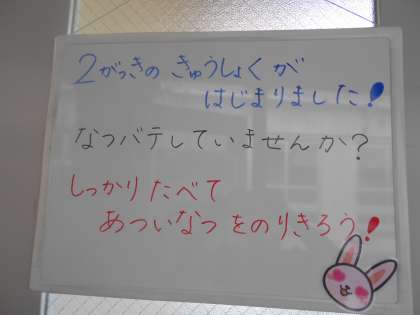 2がっきの きゅうしょくが
はじまりました!
なつバテしていませんか?
しっかり たべて
あついなつ をのりきろう!